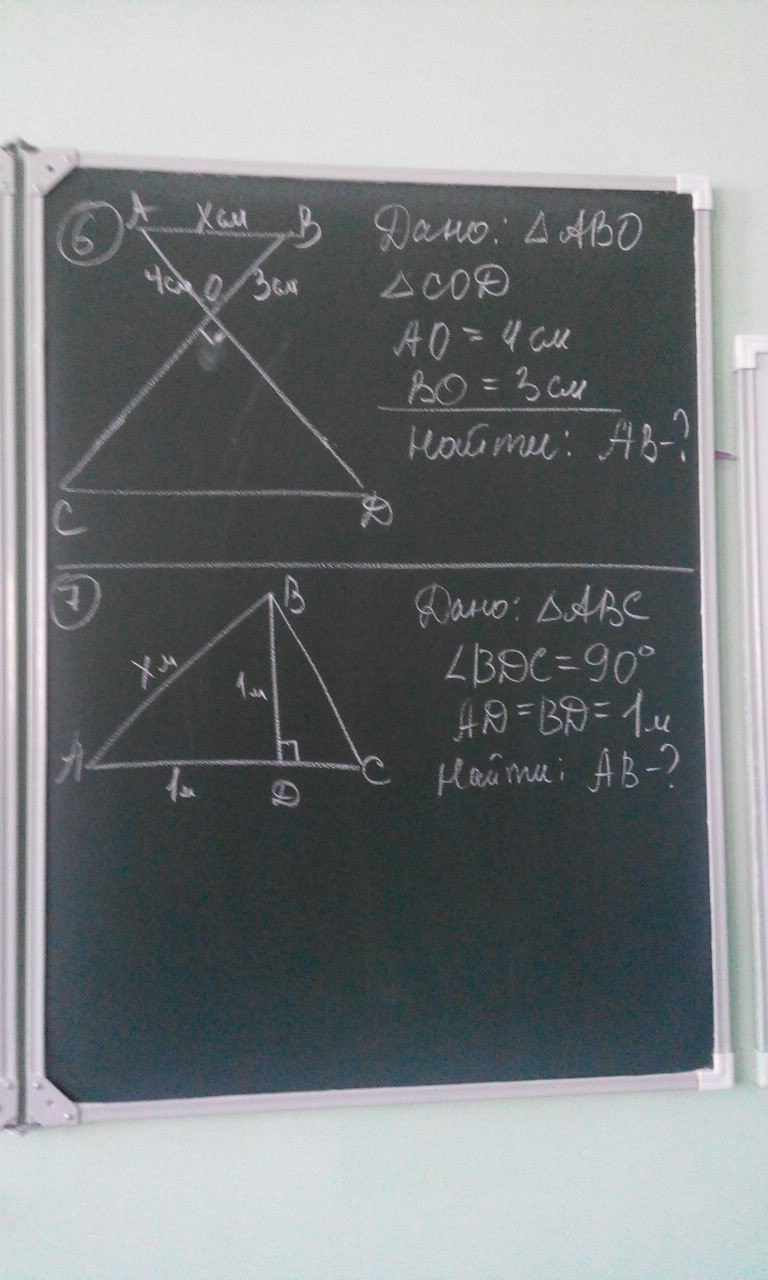 6
A x см B
4 см O 3 см
C D
Дано: △ABO
△COD
AO = 4 см
BO = 3 см
Найти: AB-?
7
B
x м 1м
A 1м D C
Дано: △ABC
∠BDC = 90°
AD = BD = 1м
Найти: AB-?